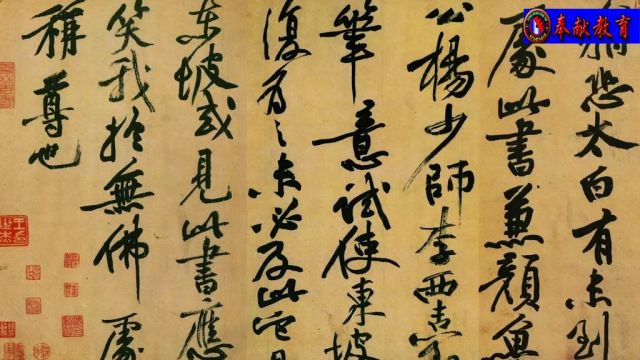 奉献教育
猶恐太白有未到
處此書兼顏魯
公楊少師李西臺
筆意試使東坡
復為之未必及此它日
東坡或見此書應
笑我於無佛處
稱尊也